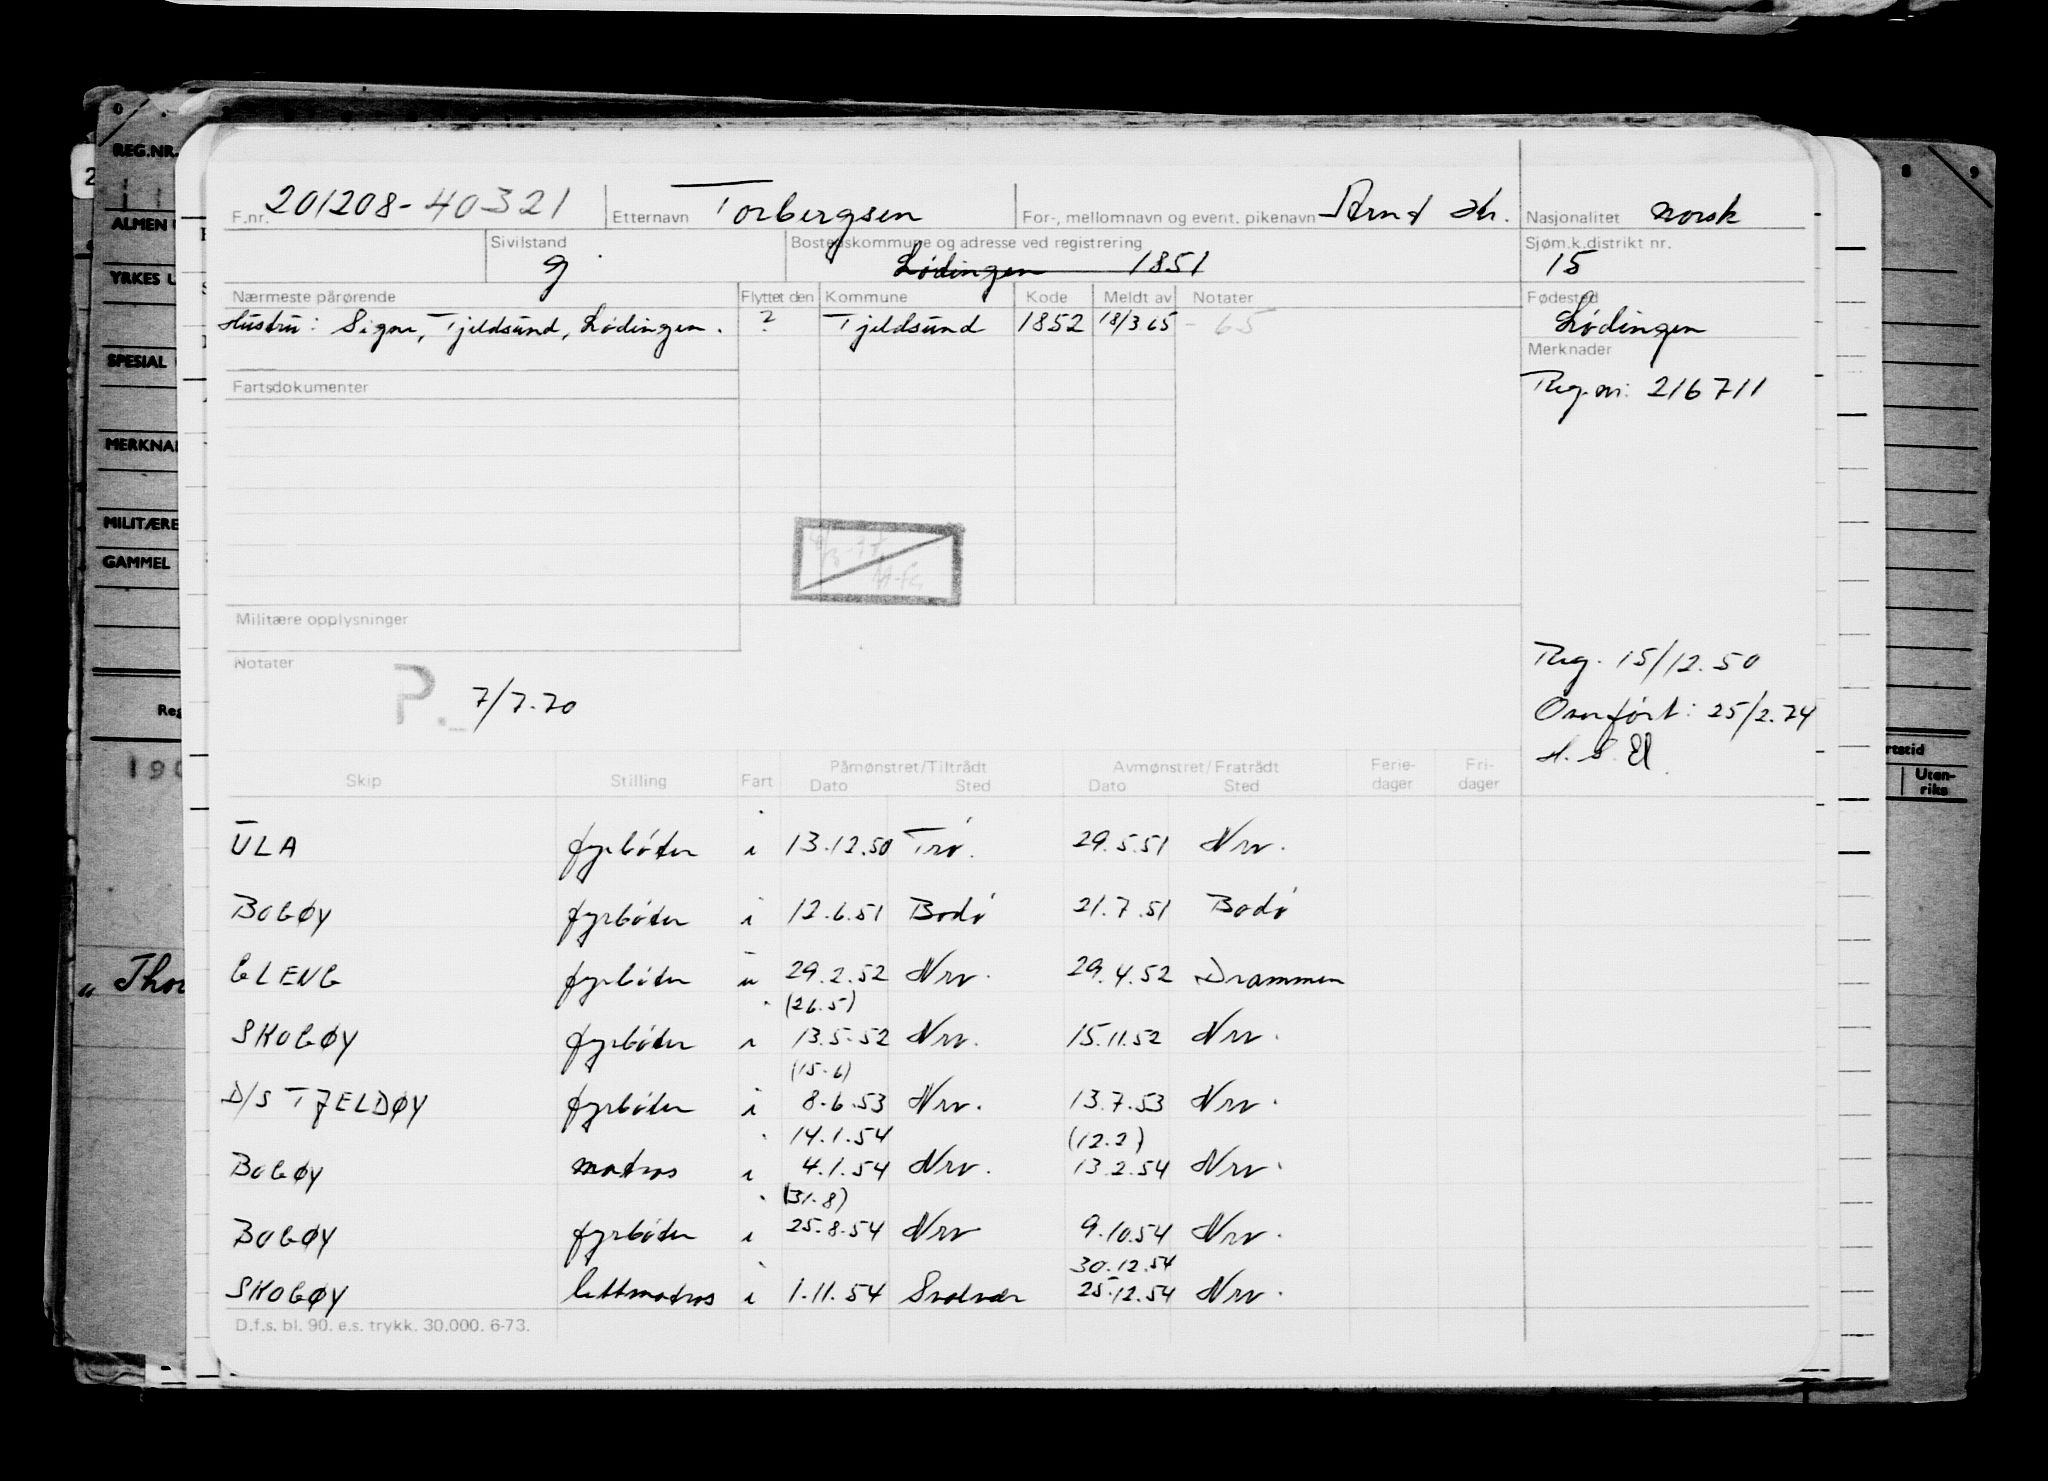 F.nr. 201208-40321 Etternavn Torbergsen For-, mellomnavn og event. pikenavn Arnt Kr. Nasjonalitet norsk
Sivilstand g Bostedskommune og adresse ved registrering Lødingen 1851 Sjøm.k.distrikt nr. 15
Nærmeste pårørende Flyttet den Kommune Kode Meldt av Notater Fødested
Hustru: Signe, Tjeldsund, Lødingen. ? Tjeldsund 1852 18/3 65 - 65 Lødingen
Merknader
Fartsdokumenter
Reg.nr: 216711
Militære opplysninger
Notater
P. 7/7.70
Reg. 15/12.50
Overført: 25/2.74
Skip Stilling Fart Påmønstret/Tiltrådt Dato Sted Avmønstret/Fratrådt Dato Sted Ferie-dager Fri-dager
ULA fyrbøter i 13.12.50 Trø. 29.5.51 Nrv.
BOGØY fyrbøter i 12.6.51 Bodø 21.7.51 Bodø
GLENG fyrbøter u 29.2.52 Nrv. 29.4.52 Drammen
(26.5)
SKOGØY fyrbøter i 13.5.52 Nrv. 15.11.52 Nrv.
(15.6)
D/S TJELDØY fyrbøter i 8.6.53 Nrv. 13.7.53 Nrv.
14.1.54 (12.2)
BOGØY matros i 4.1.54 Nrv. 13.2.54 Nrv.
(31.8)
BOGØY fyrbøter i 25.8.54 Nrv 9.10.54 Nrv.
30.12.54
SKOGØY lettmatros i 1.11.54 Svolvær 25.12.54 Nrv.
D.f.s. bl. 90. e.s. trykk. 30.000. 6-73.
REG.NR.
ALMEN
YRKES U
SPESIAL
MERKNA
MILITÆRE
GAMMEL
Reg
190
„ Thor
rtstid
Uten-
riks